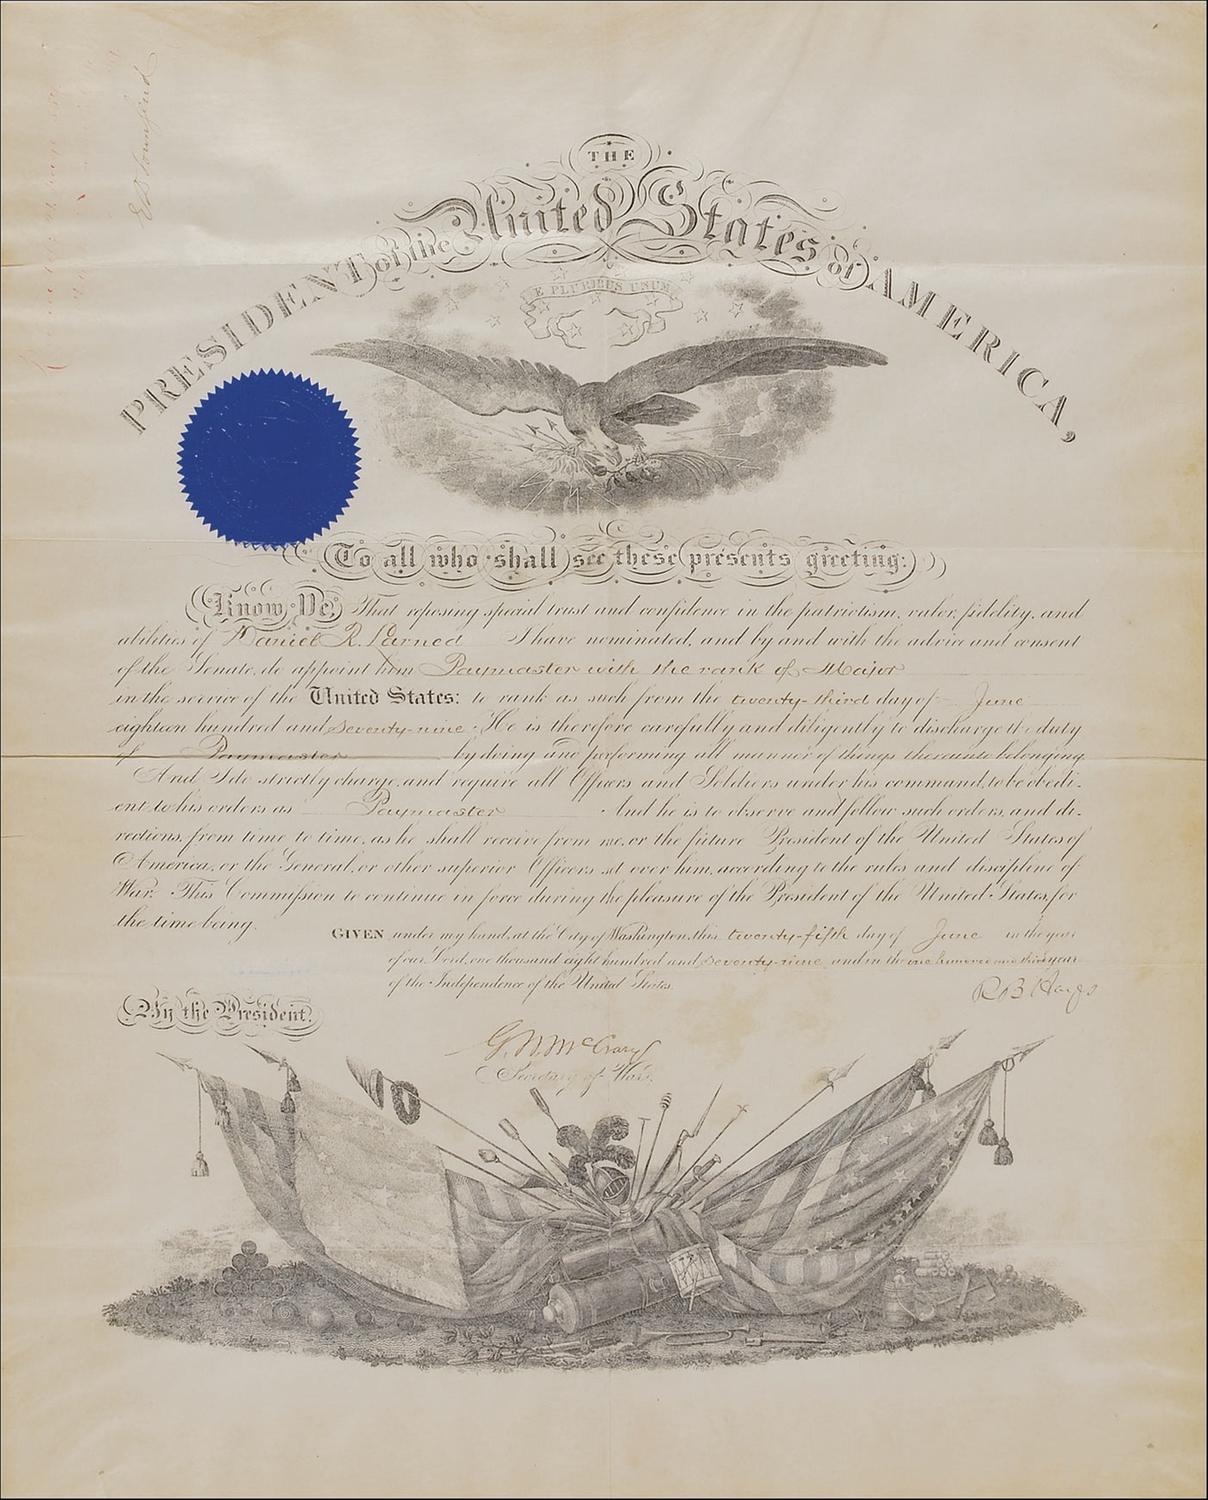 E D Townsend
THE
PRESIDENT of the United States of AMERICA,
E PLURIBUS UNUM
To all who shall see these presents greeting:
Know Ye, That reposing special trust and confidence in the patriotism, valor, fidelity, and
abilities of Daniel R. Larned I have nominated, and by and with the advice and consent
of the Senate, do appoint him Paymaster with the rank of Major
in the service of the United States: to rank as such from the twenty-third day of June
eighteen hundred and seventy-nine. He is therefore carefully and diligently to discharge the duty
of Paymaster by doing and performing all manner of things thereunto belonging.
And I do strictly charge, and require all Officers and Soldiers under his command, to be obedi-
ent to his orders as Paymaster And he is to observe and follow such orders, and di-
rections, from time to time, as he shall receive from me, or the future President of the United States of
America, or the General, or other superior Officers set over him, according to the rules and discipline of
War. This Commission to continue in force during the pleasure of the President of the United States, for
the time being.
GIVEN under my hand, at the City of Washington, this twenty-fifth day of June in the year
of our Lord, one thousand eight hundred and seventy-nine and in the one hundred and third year
of the Independence of the United States.
R B Hayes
By the President.
G. W. McCrary
Secretary of War.